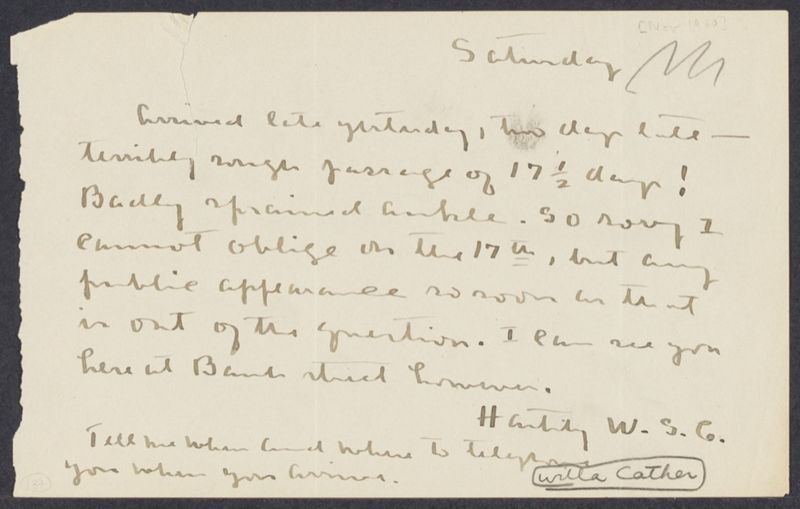 [Nov 1920]
Saturday
Arrived late yesterday, two days late —
terribly rough passage of 17 1/2 days!
Badly sprained ankle. So sorry I
cannot oblige on the 17th, but any
public appearance so soon as that
is out of the question. I can see you
here at Bank street however.
Hastily W. S. C.
Tell me when and where to telephone
you when you arrive.
Willa Cather